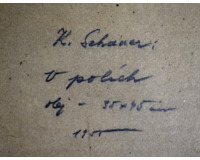 K. Schauer:
V polích
olej - 35x45 cm